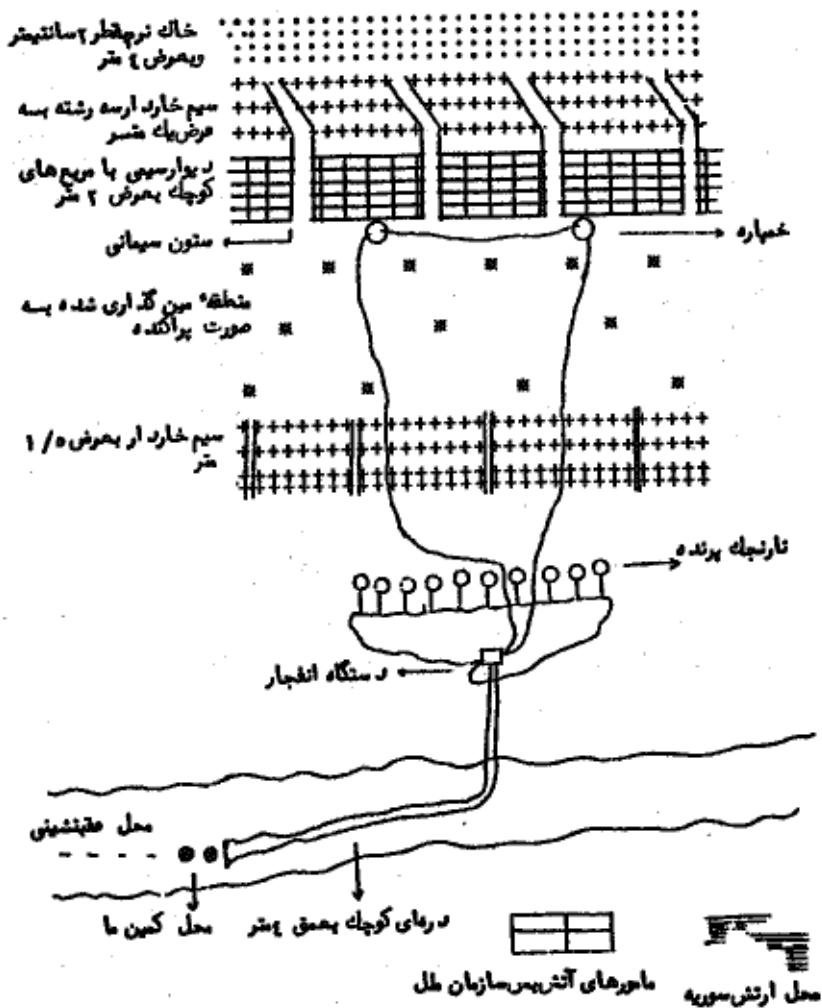 خاك نرم بقطر ٢ سانتيمتر
وبعرض ٤ متر
سيم خاردار سه رشته بسه
عرض يك متسر
ديوار سيمى با مربع هاى
كوچك بعرض ٢ متر
ستون سيمانى
خمپاره
منطقهٔ مين گذارى شده بسه
صورت پراكنده
سيم خاردار بعرض ١/٥
متر
نارنجك پرنده
دستگاه انفجار
محل عقبنشينى
محل كمين ما
دره‌اى كوچك بعمق ٤متر
مامورهاى آتش بس سازمان ملل
محل ارتش سوريه